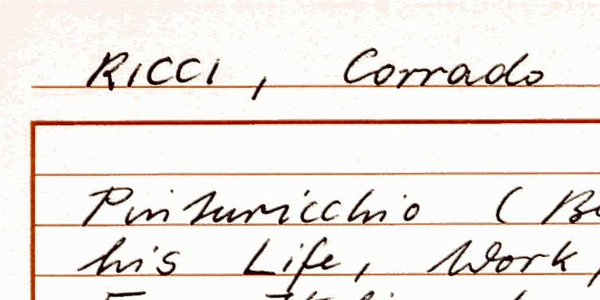 RICCI, Corrado
Pinturicchio (
his Life, Work,